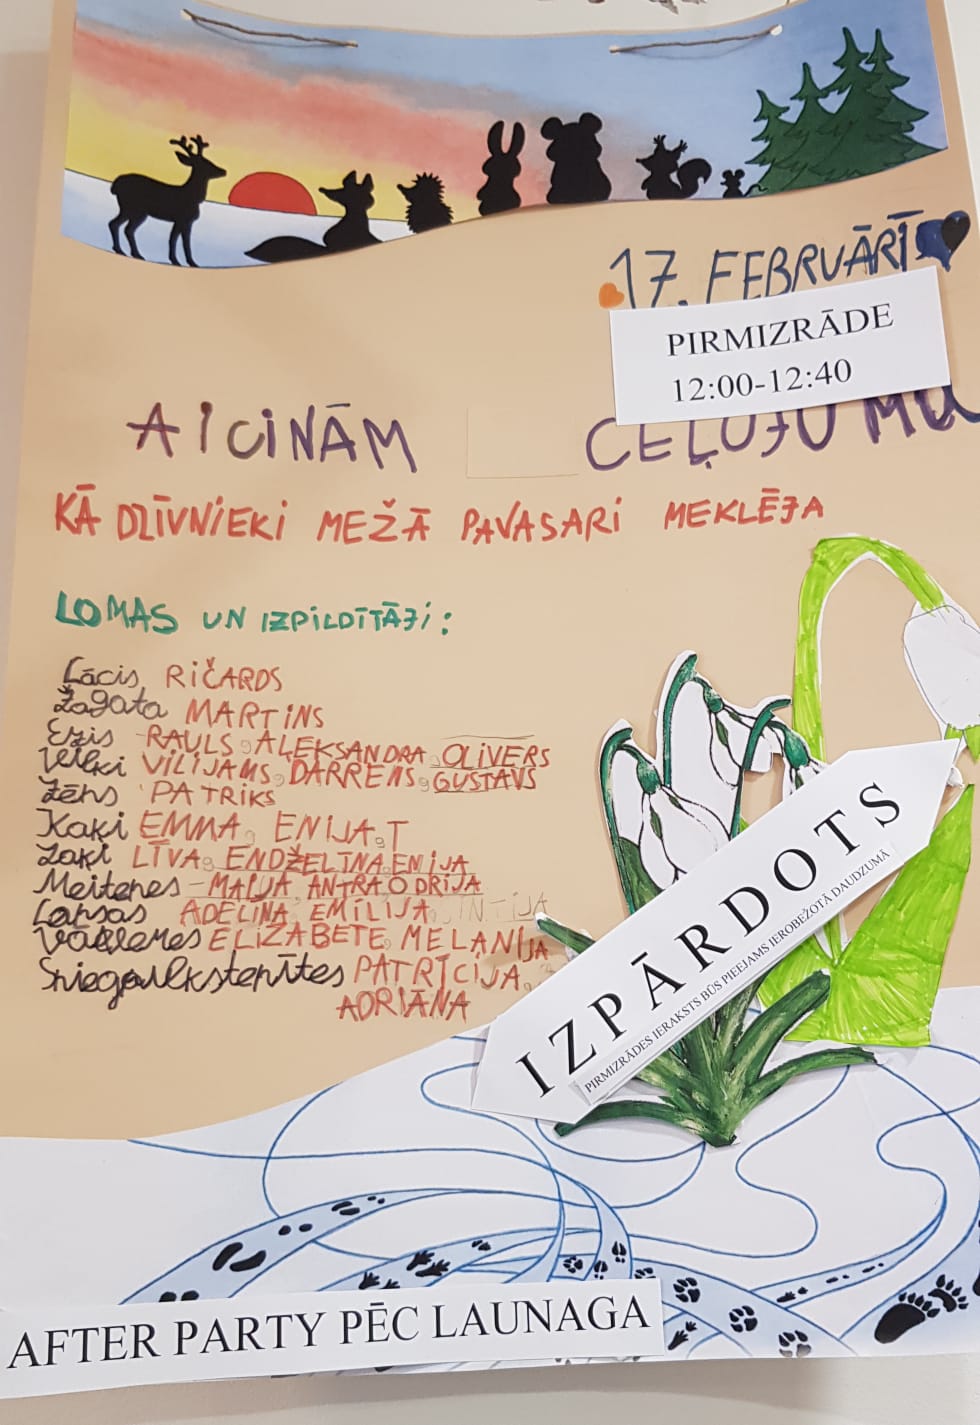 17. FEBRUĀRĪ
PIRMIZRĀDE
12:00-12:40
AICINĀM CEĻOJUMU
KĀ DZĪVNIEKI MEŽĀ PAVASARI MEKLĒJA
LOMAS UN IZPILDĪTĀJI:
Lācis RIČARDS
Žagata MARTINS
Ezis - RAULS, ALEKSANDRA, OLIVERS
Vilki VILIJAMS, DARRENS, GUSTAVS
Zēns PATRIKS
Kaķi EMMA, ENIJA.T
Zaķi LĪVA, ENDŽELĪNA, ENIJA
Meitenes - MAIJA, ANTRA, ODRIJA
Lapsas ADELINA, EMĪLIJA, INTIJA
ELIZABETE, MELĀNIJA
Sniegpulkstenītes PATRĪCIJA,
ADRIĀNA
IZPĀRDOTS
PIRMIZRĀDES IERAKSTS BŪS PIEEJAMS IEROBEŽOTĀ DAUDZUMĀ
AFTER PARTY PĒC LAUNAGA